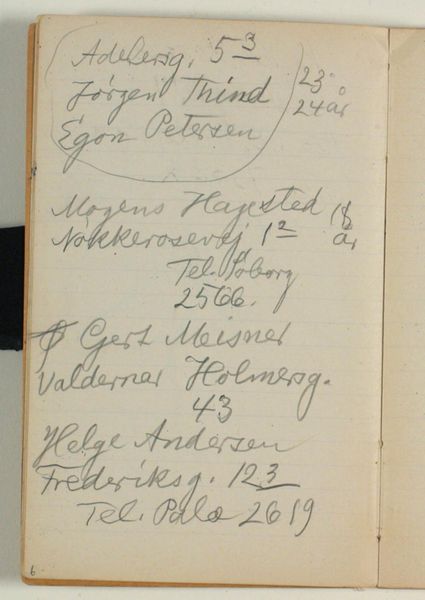 Adelersg. 5 3
Jörgen Thind
Egon Petersen
23
24 år
Mogens Hagested
18 år
Nøkkerosevej 1 2
Tel. Søborg
2566.
Gert Meisner
Valdemar Holmersg.
43
Helge Andersen
Frederiksg. 12 3
Tel. Palæ 2619
6